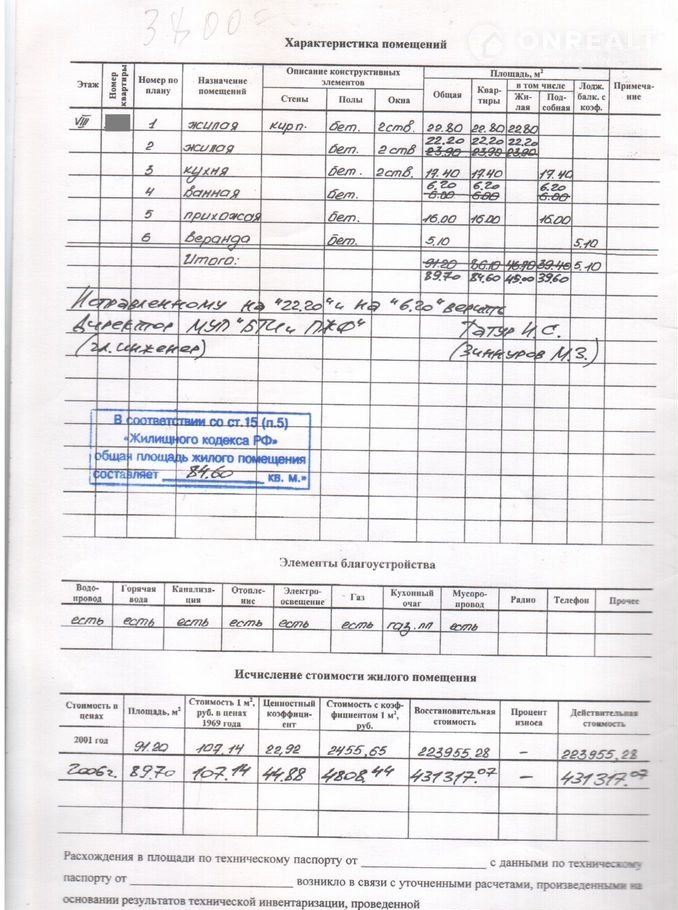 3800=
ONREALT
Характеристика помещений
Этаж | Номер квартиры | Номер по плану | Назначение помещений | Описание конструктивных элементов | Площадь, м² | Примеча-ние
Стены | Полы | Окна | Общая | Квар-тиры | в том числе | Лодж. балк. с коэф.
Жи-лая | Под-собная
VIII | 1 | жилая | кирп. | бет. | 2 ств. | 22.80 | 22.80 | 22.80
22.20 | 22.20 | 22.20
2 | жилая | бет. | 2 ств | 23.90 | 23.90 | 23.90
3 | кухня | бет. | 2 ств. | 17.40 | 17.40 | 17.40
6.20 | 6.20 | 6.20
4 | ванная | бет. | 6.00 | 6.00 | 6.00
5 | прихожая | бет. | 16.00 | 16.00 | 16.00
6 | веранда | бет. | 5.10 | 5.10
Итого: | 91.20 | 86.10 | 46.70 | 39.40 | 5.10
89.70 | 84.60 | 45.00 | 39.60
Исправленному на "22.20" и на "6.20" верить
Директор МУП "БТИ и ПЖФ" Татур И.С.
(гл. инженер) (Зиннуров М.З.)
В соответствии со ст.15 (п.5)
«Жилищного кодекса РФ»
общая площадь жилого помещения
составляет 84.60 кв. м.»
Элементы благоустройства
Водо-провод | Горячая вода | Канализа-ция | Отопле-ние | Электро-освещение | Газ | Кухонный очаг | Мусоро-провод | Радио | Телефон | Прочее
есть | есть | есть | есть | есть | есть | газ. пл | есть
Исчисление стоимости жилого помещения
Стоимость в ценах | Площадь, м² | Стоимость 1 м², руб. в ценах 1969 года | Ценностный коэффици-ент | Стоимость с коэф-фициентом 1 м², руб. | Восстановительная стоимость | Процент износа | Действительная стоимость
2001 год | 91.20 | 107.14 | 22,92 | 2455,65 | 223955.28 | – | 223955.28
2006 г. | 89.70 | 107.14 | 44.88 | 4808,44 | 431317.07 | – | 431317.07
Расхождения в площади по техническому паспорту от ____ с данными по техническому
паспорту от ____ возникло в связи с уточненными расчетами, произведенными на
основании результатов технической инвентаризации, проведенной